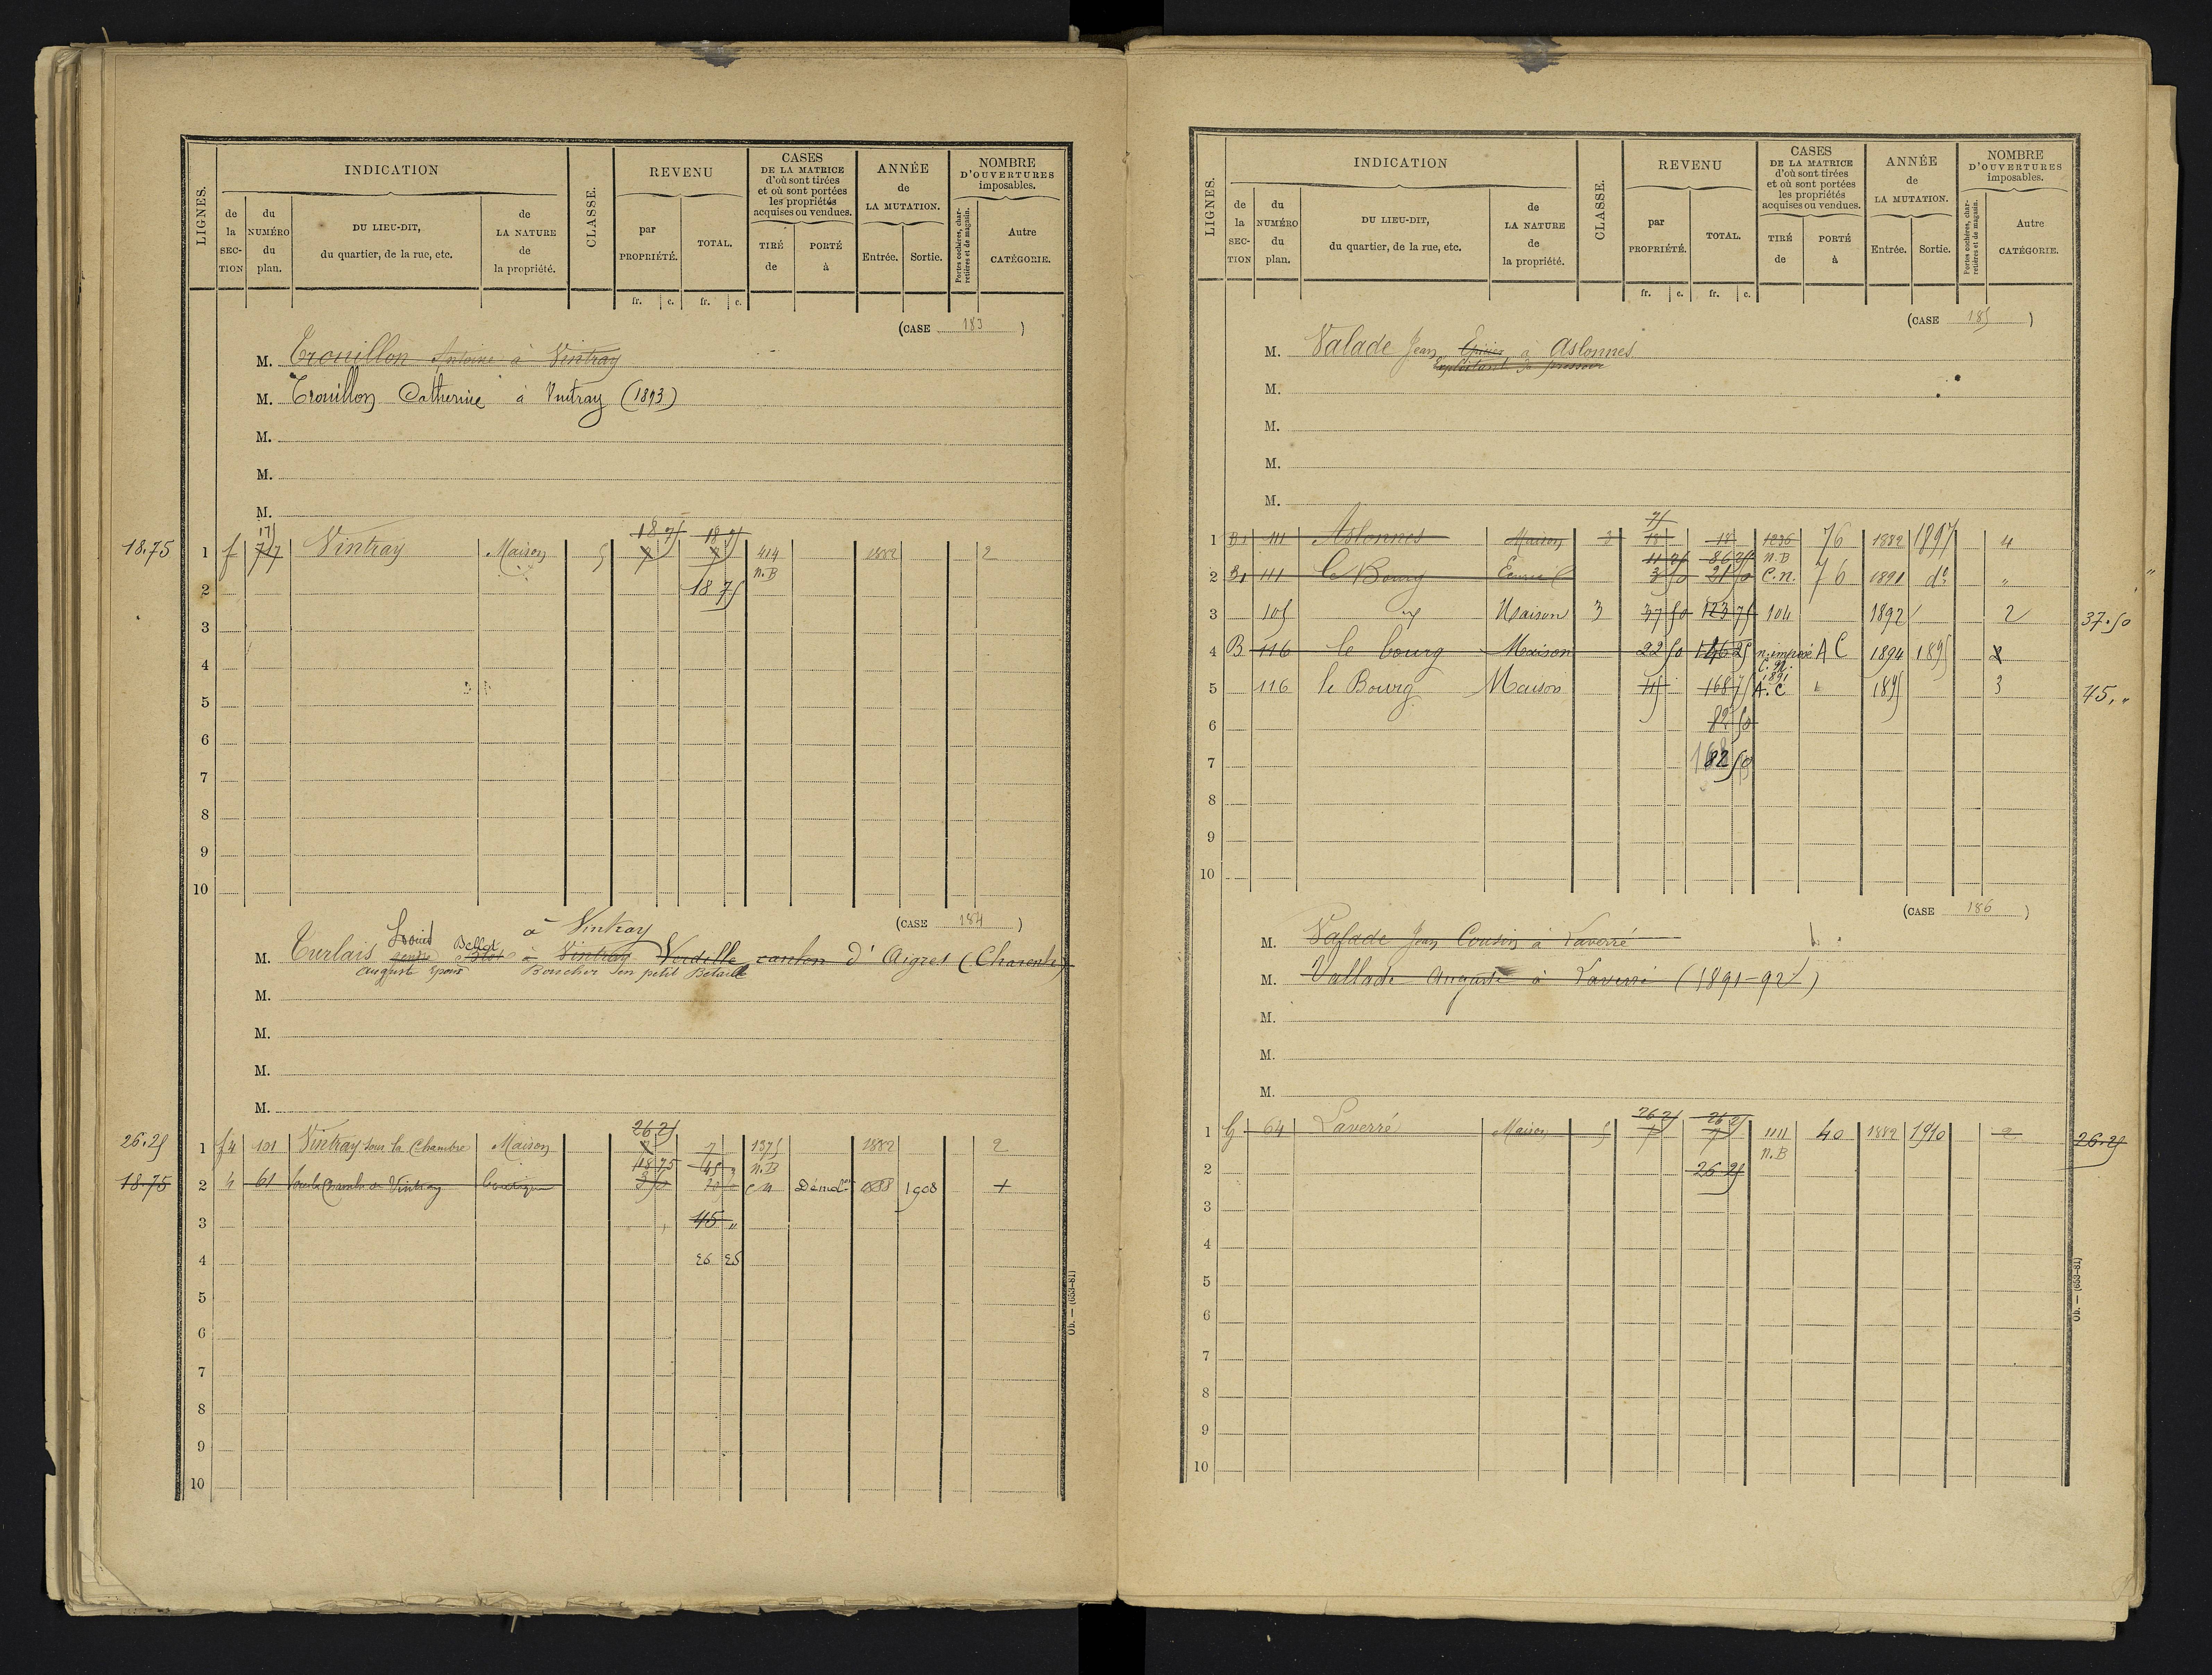 LIGNES.
INDICATION
de la SECTION
du NUMÉRO du plan.
DU LIEU-DIT, du quartier, de la rue, etc.
de LA NATURE de la propriété.
CLASSE.
REVENU
par PROPRIÉTÉ.
TOTAL.
fr. c. fr. c.
CASES DE LA MATRICE d'où sont tirées et où sont portées les propriétés acquises ou vendues.
TIRÉ de
PORTÉ à
ANNÉE de LA MUTATION.
Entrée. Sortie.
NOMBRE D'OUVERTURES imposables.
Portes cochères, charretières et de magasin.
Autre CATÉGORIE.
(CASE 183)
M. Trouillon Antoine à Vintray
M. Trouillon Catherine à Vintray (1893)
M.
M.
M.
18 75 18 75
18.75 1 f 717 Vintray Maison 5 7 7 414 1882 2
n.B
2 18 75
3
4
5
6
7
8
9
10
(CASE 184)
à Vintray
Louis Bellot
M. Turlais gendre à Vintray Verdille canton d'Aigres (Charente)
auguste époux Boucher en petit Bétail
M.
M.
M.
M.
26 25
26.25 1 f4 101 Vintray sous la Chambre Maison 7 7 1375 1882 2
18 75 45 " n.B
18.75 2 4 61 Boutique 3 50 Démol. 1888 1908 +
3 45 "
4 26 25
5
6
7
8
9
10
Ob. — (653-81)
LIGNES.
INDICATION
de la SECTION
du NUMÉRO du plan.
DU LIEU-DIT, du quartier, de la rue, etc.
de LA NATURE de la propriété.
CLASSE.
REVENU
par PROPRIÉTÉ.
TOTAL.
fr. c. fr. c.
CASES DE LA MATRICE d'où sont tirées et où sont portées les propriétés acquises ou vendues.
TIRÉ de
PORTÉ à
ANNÉE de LA MUTATION.
Entrée. Sortie.
NOMBRE D'OUVERTURES imposables.
Portes cochères, charretières et de magasin.
Autre CATÉGORIE.
(CASE 185)
M. Valade Jean Epicier à Aslonnes
Exploitant de pressoir
M.
M.
M.
M.
75
1 B1 111 Aslonnes Maison 3 18 18 1236 76 1882 1897 4
11 25 86 25 n.B
2 B1 111 le Bourg Ecurie 3 50 21 50 C.n. 76 1891 do "
3 105 Maison 3 37 50 123 75 104 1892 2 37.50
4 B 116 le bourg Maison 22 50 146 25 n. imposé AC 1894 1895 2
5 116 le Bourg Maison 45 168 75 A.C 1895 3 45."
6 82 50
7 82 50
8
9
10
(CASE 186)
M. Valade Jean Cousin à Laverré
M. Vallade Auguste à Laverré (1891-92)
M.
M.
M.
26 25 26 25
1 G 64 Laverré Maison 5 7 7 1111 40 1882 1910 2 26.25
n.B
2 26 25
3
4
5
6
7
8
9
10
Ob. — (653-81)